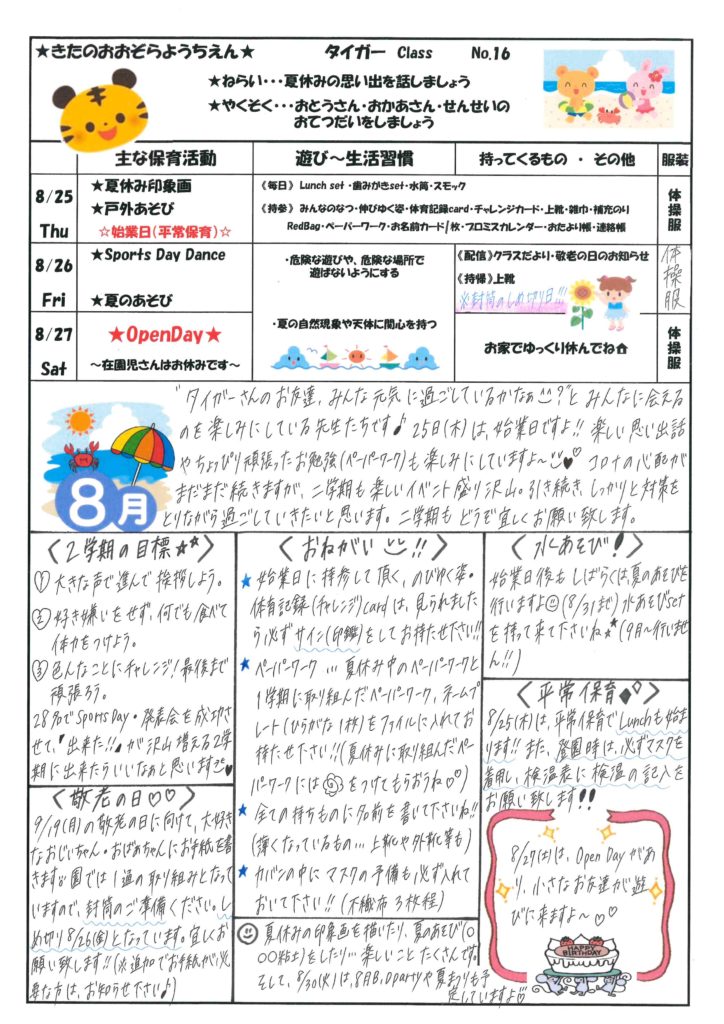 ★きたのおおぞらようちえん★ タイガー Class No.16
★ねらい・・・夏休みの思い出を話しましょう
★やくそく・・・おとうさん・おかあさん・せんせいの
おてつだいをしましょう
主な保育活動 遊び～生活習慣 持ってくるもの ・ その他 服装
8/25
Thu
★夏休み印象画
★戸外あそび
☆始業日(平常保育)☆
《毎日》 Lunch set・歯みがきset・水筒・スモック
《持参》 みんなのなつ・伸びゆく姿・体育記録card・チャレンジカード・上靴・雑巾・補充のり
RedBag・ペーパーワーク・お名前カード1枚・プロミスカレンダー・おたより帳・連絡帳
体操服
8/26
Fri
★Sports Day Dance
★夏のあそび
・危険な遊びや、危険な場所で
遊ばないようにする
《配信》クラスだより・敬老の日のお知らせ
《持帰》上靴
※封筒のしめ切り日!!!
体操服
8/27
Sat
★OpenDay★
～在園児さんはお休みです～
・夏の自然現象や天体に関心を持つ
お家でゆっくり休んでね
体操服
8月
"タイガーさんのお友達、みんな元気に過ごしているかなぁ?"と みんなに会える
のを楽しみにしている先生たちです♪ 25日(木)は、始業日ですよ!! 楽しい思い出話
やちょっぴり頑張ったお勉強(ペーパーワーク)も楽しみにしていますよ～♥ コロナの心配が
まだまだ続きますが、二学期も楽しいイベント盛り沢山。引き続き、しっかりと対策を
とりながら過ごしていきたいと思います。二学期も どうぞ宜しくお願い致します。
〈2学期の目標★★〉
① 大きな声で進んで挨拶しよう。
② 好き嫌いをせず、何でも食べて
体力をつけよう。
③ 色んなことにチャレンジ!最後まで
頑張ろう。
28名でSportsDay・発表会を成功さ
せて、「出来た!!」が沢山増える2学
期に出来たらいいなぁと思います♥
〈敬老の日♡♡〉
9/19(月)の敬老の日に向けて、大好き
なおじいちゃん・おばあちゃんにお手紙を書
きます。園では1通の取り組みとなって
いますので、封筒のご準備ください。し
め切り8/26(金)となっています。宜しくお
願い致します!!(※追加でお手紙が必
要な方は、お知らせ下さい♪)
〈おねがい!!〉
★ 始業日に持参して頂く、のびゆく姿・
体育記録(チャレンジ)Cardは、見られました
ら必ずサイン(印鑑)をしてお持たせ下さい!!
★ ペーパーワーク…夏休み中のペーパーワークと
1学期に取り組んだペーパーワーク、ネームプ
レート(ひらがな1枚)をファイルに入れてお
持たせ下さい!!(夏休みに取り組んだペー
パーワークには をつけてもらおうね♡♡)
★ 全ての持ちものに名前を書いて下さいね!!
(薄くなっているもの…上靴や外靴等も)
★ カバンの中にマスクの予備も必ず入れて
おいて下さい!!(不織布 3枚程)
夏休みの印象画を描いたり、夏のあそび(〇
〇〇粘土)をしたり…楽しいことたくさんです。
そして、8/30(火)は、8月B.Dpartyや夏まつりも予
定していますよ♡
〈水あそび!〉
始業日後もしばらくは、夏のあそびを
行いますよ(8/31まで)水あそびset
を持って来て下さいね★★(9月～行いませ
ん!!)
〈平常保育◆◇〉
8/25(木)は、平常保育でLunchも始ま
ります!!また、登園時は、必ずマスクを
着用し、検温表に検温の記入を
お願い致します!!
8/27(土)は、Open Dayがあ
り、小さなお友達が遊
びに来ますよ～♡♡
HAPPY
BIRTHDAY